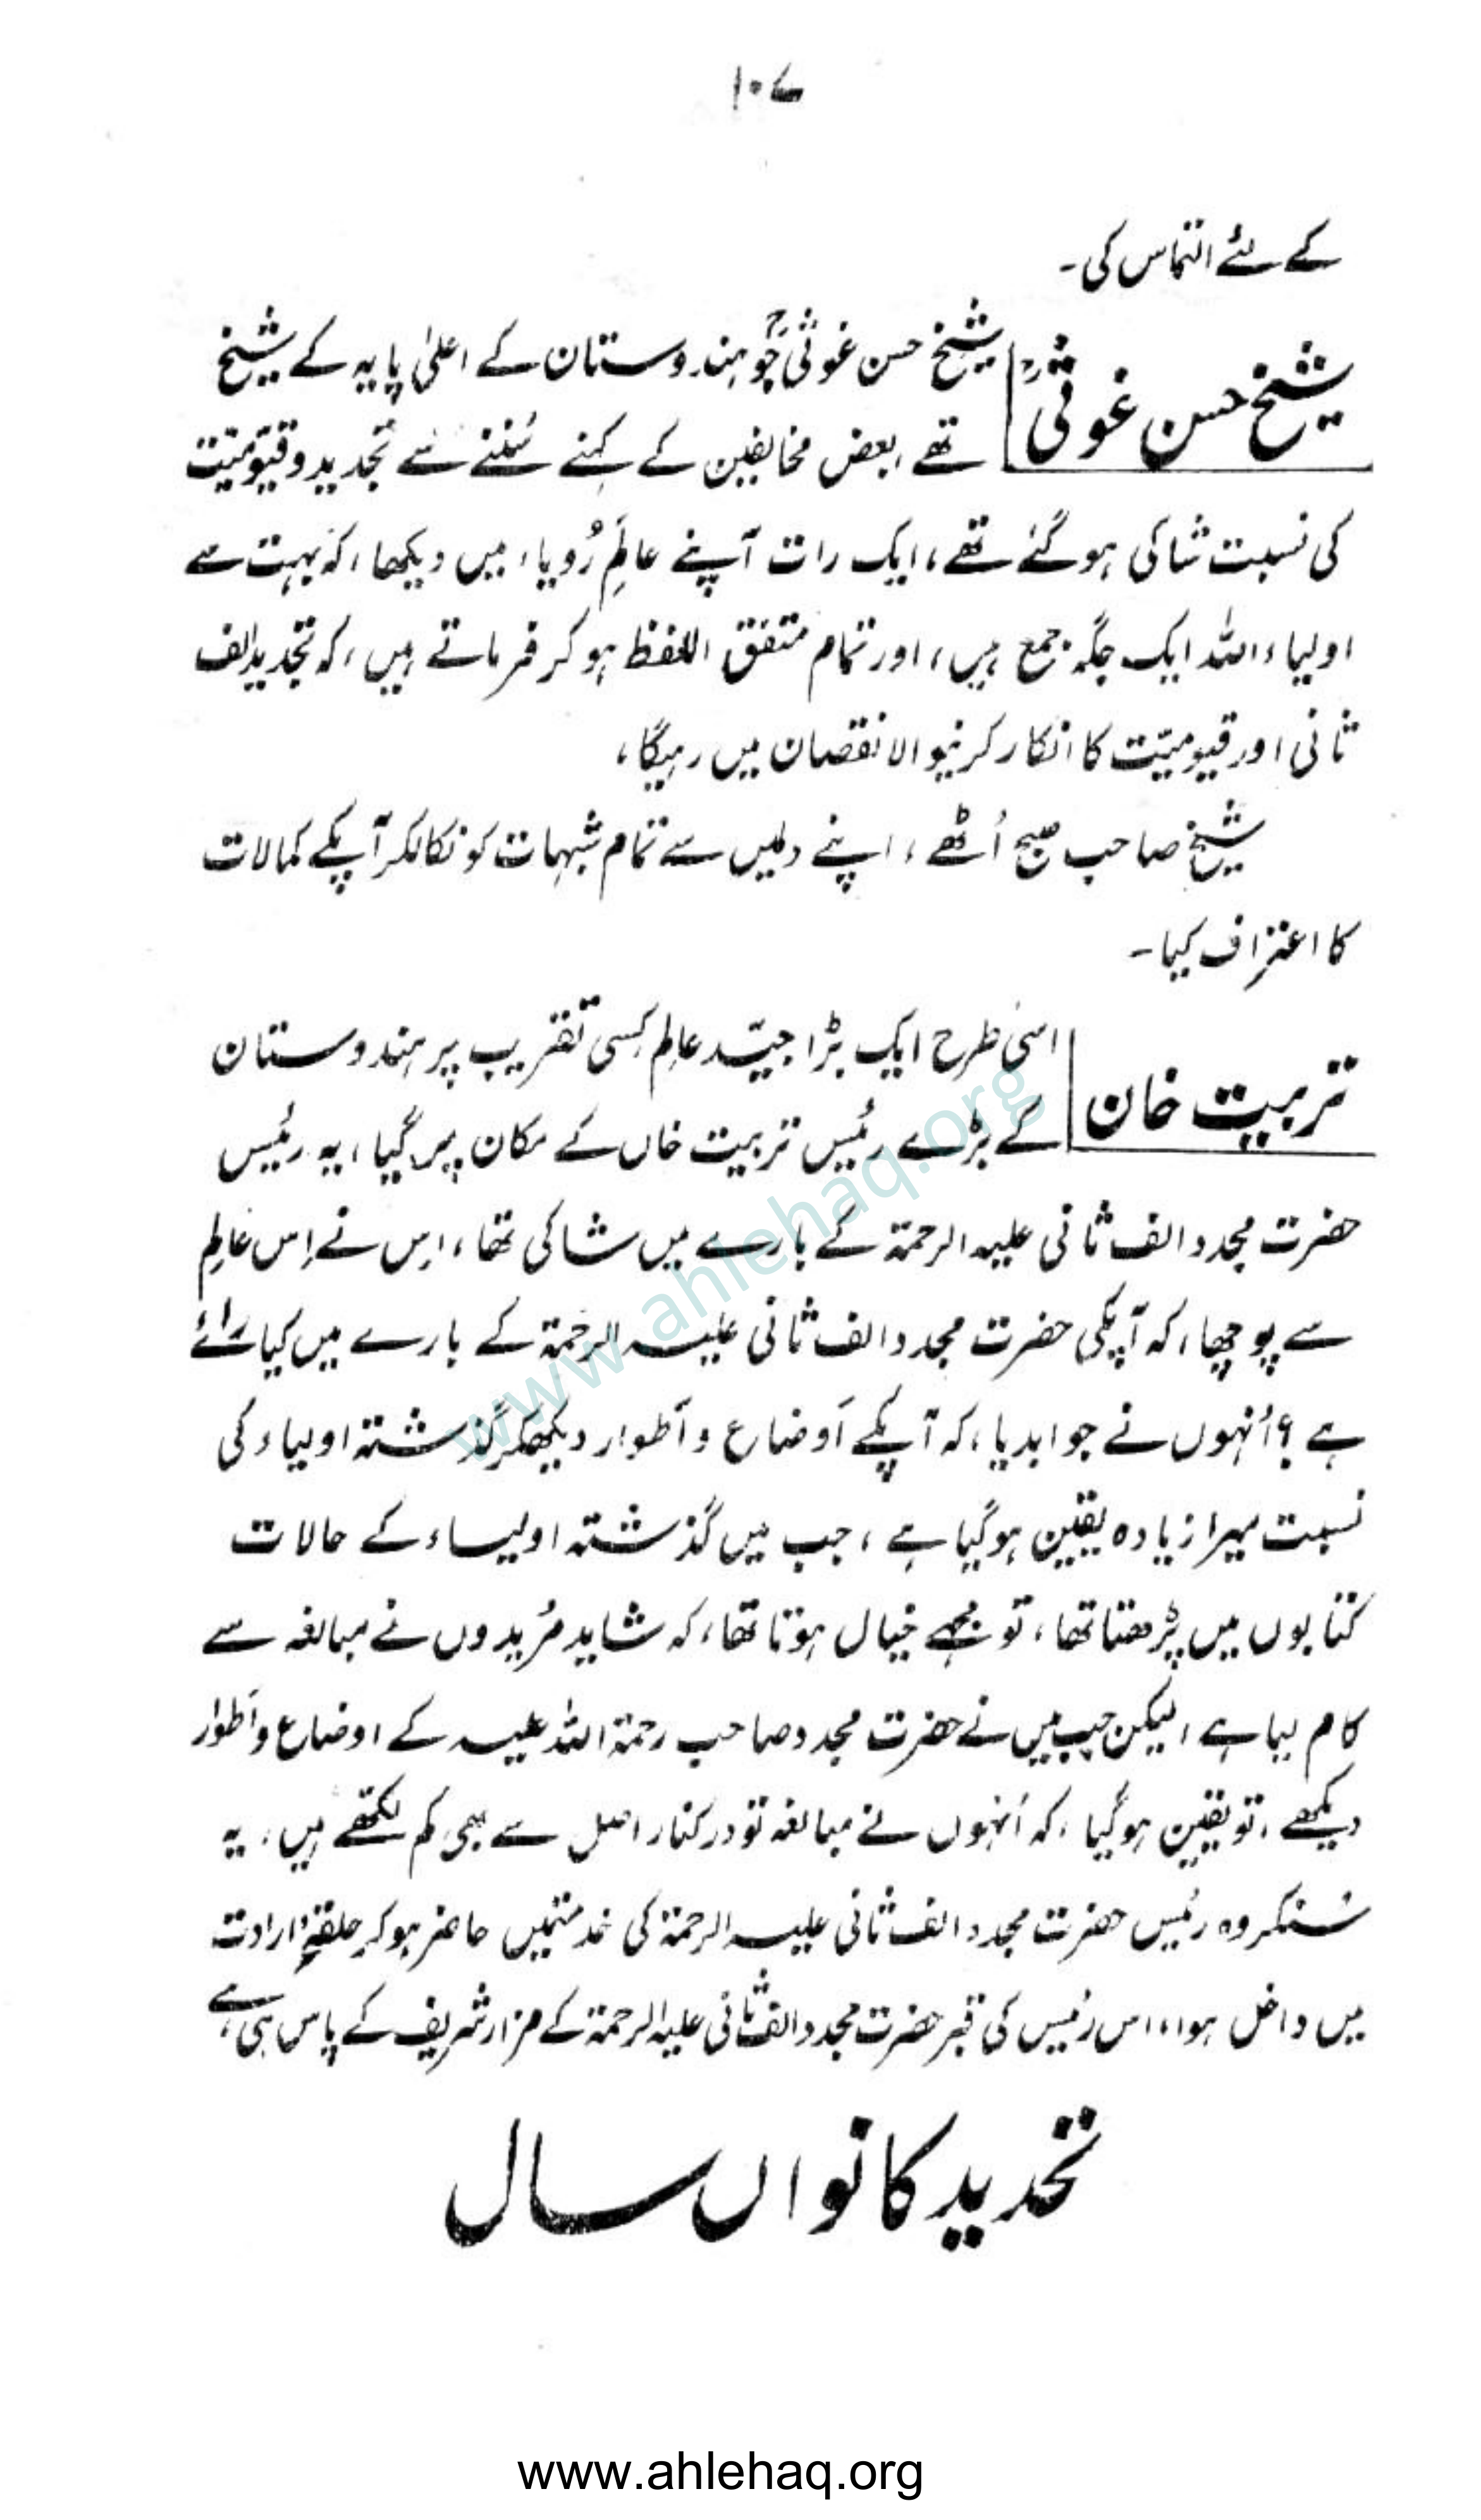 ۱۰۷
کے لئے التماس کی۔
شیخ حسن غوثیؒ
شیخ حسن غوثیؒ جو ہندوستان کے اعلیٰ پایہ کے شیخ
تھے، بعض مخالفین کے کہنے سُننے سے تجدید و قیّومیّت
کی نسبت شاکی ہو گئے تھے، ایک رات آپنے عالَمِ رُویاء میں دیکھا، کہ بہت سے
اولیاء اللہ ایک جگہ جمع ہیں، اور تمام متفق اللفظ ہو کر فرماتے ہیں، کہ تجدید الف
ثانی اور قیومیّت کا انکار کرنیوالا نقصان میں رہیگا،
شیخ صاحب صبح اُٹھے، اپنے دلمیں سے تمام شبہات کو نکالکر آپکے کمالات
کا اعتراف کیا۔
تربیت خان
اسی طرح ایک بڑا جیّد عالِم کسی تقریب پر ہندوستان
کے بڑے رئیس تربیت خاں کے مکان پر گیا، یہ رئیس
حضرت مجدد الف ثانی علیہ الرحمۃ کے بارے میں شاکی تھا، اس نے اِس عالِم
سے پوچھا، کہ آپکی حضرت مجدد الف ثانی علیہ الرحمۃ کے بارے میں کیا رائے
ہے؟ اُنہوں نے جوابدیا، کہ آپکے اَوضاع و اَطوار دیکھکر گذشتہ اولیاء کی
نسبت میرا زیادہ یقین ہو گیا ہے، جب میں گذشتہ اولیاء کے حالات
کتابوں میں پڑھتا تھا، تو مجھے خیال ہوتا تھا، کہ شاید مُریدوں نے مبالغہ سے
کام لیا ہے، لیکن جب میں نے حضرت مجدد صاحب رحمۃ اللہ علیہ کے اوضاع و اَطوار
دیکھے، تو یقین ہو گیا، کہ اُنہوں نے مبالغہ تو درکنار اصل سے بھی کم لکھتے ہیں، یہ
سُنکر وہ رئیس حضرت مجدد الف ثانی علیہ الرحمۃ کی خدمتمیں حاضر ہو کر حلقۂ ارادت
میں داخل ہوا، اس رئیس کی قبر حضرت مجدد الف ثانی علیہ الرحمۃ کے مزار شریف کے پاس ہی ہے،
تجدید کا نواں سال
www.ahlehaq.org
www.ahlehaq.org